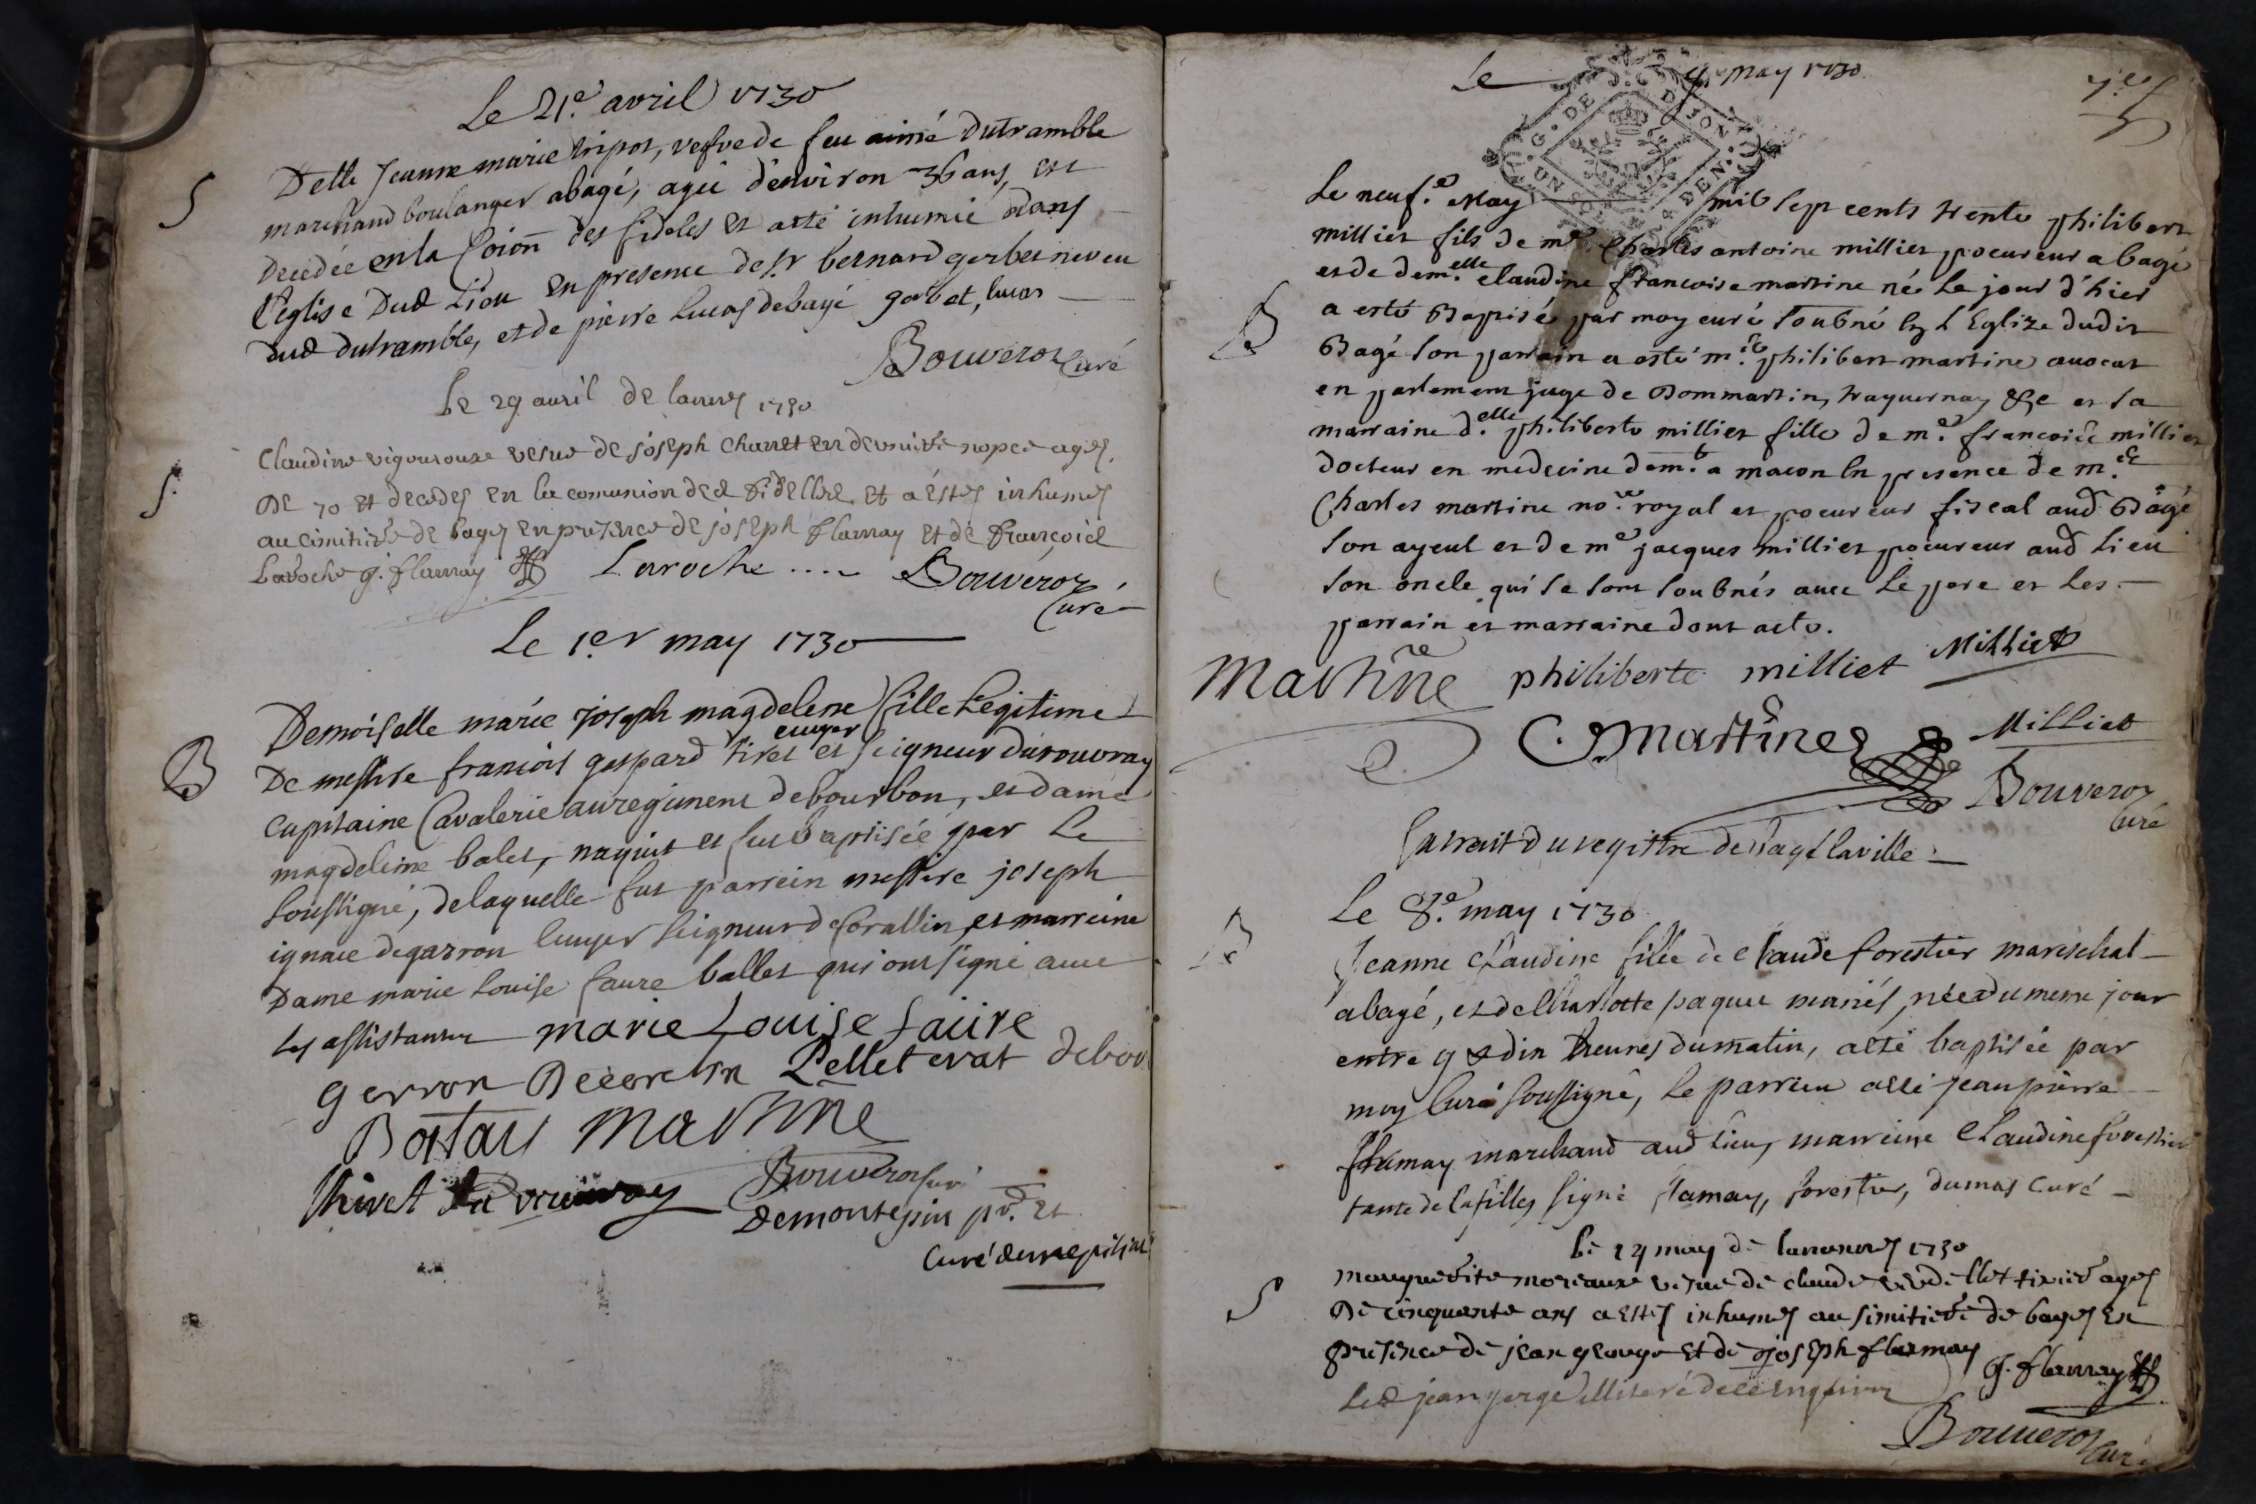 Le 21.e avril 1730
S
Delle Jeanne marie tripot, vefve de feu aimé Dutramble
marchand boulanger abagé, agée d'environ 36 ans, est
Decedée en la Coion des fideles et a été inhumée dans
l'église Dud Lieu en presence de Sr bernard gerbet neveu
dud dutramble, et de pierre Lucas de bagé gerbet, lucas
Bouverot Curé
Le 29 auril de lannes 1730
S.
Claudine vigourouse vesue de joseph Charret en nopce ages
De 70 et decedes en la comunion des fidelle et a estes inhumes
au cimitiere de bages en presence de joseph flamay et de françois
Laroche J. flamay Laroche .... Bouverot
Curé
Le 1er may 1730
B
Demoiselle marie joseph magdelene fille Legitime
De messire francois gaspard tivet ecuyer et seigneur du rouvray
Capitaine Cavalerie au regiment de bourbon, et dame
magdeleine balet, naquit et fut baptisée par le
soussigné, de laquelle fut parrein messire joseph
ignace de garron ecuyer seigneur de et marreine
Dame marie Louise faure ballet qui ont signé avec
les assistants marie Louise faüre
gerron Pellet
Martine
Bouverot curé
Demontepin pr. Et
Curé
Le 9 may 1730
7.e
G. DE DIJON
UN SOL 4 DEN.
Le neuf.e May mil sept cents trente philibert
milliet fils de me Charles antoine milliet procureur a bagé
et de dem.elle claudine francoise martine né le jour d'hier
B
a esté Baptisé par moy curé soubné en L'Eglize dudit
Bagé son parrain a esté m.re philibert martine avocat
en parlement juge de Dommartin, &c et sa
marraine d.elle philiberte millier fille de m.e francois millier
docteur en medecine dem.t a macon en presence de m.e
Charles martine no.re royal et procureur fiscal aud Bâgé
son ayeul et de me jacques millier procureur aud Lieu
son oncle qui se sont soubnés avec Le pere et Les
parrain et marraine dont acte.
Martine philiberte milliet Milliet
C. Martine Milliet
Bouverot
Curé
Extrait du registre de bagé la ville
Le 8.e may 1730
B
Jeanne Claudine fille de Claude forestier mareschal
abagé, et de Charlotte paquet mariés, née du meme jour
entre 9 & dix heures du matin, a été baptisée par
moy Curé soussigné, Le parrein a été jean pierre
flamay marchand aud Lieu, marreine Claudine forestier
tante de la fille signé flamay, forestier, dumas Curé
Le 24 may de 1730
S
marguerite moreaux vesue de claude tixier ages
De cinquante ans a estes inhumes au simitiere de bages en
presence de jean george et de joseph flamay
Led jean george illiteré de ce enquis J. flamay
Bouverot Curé